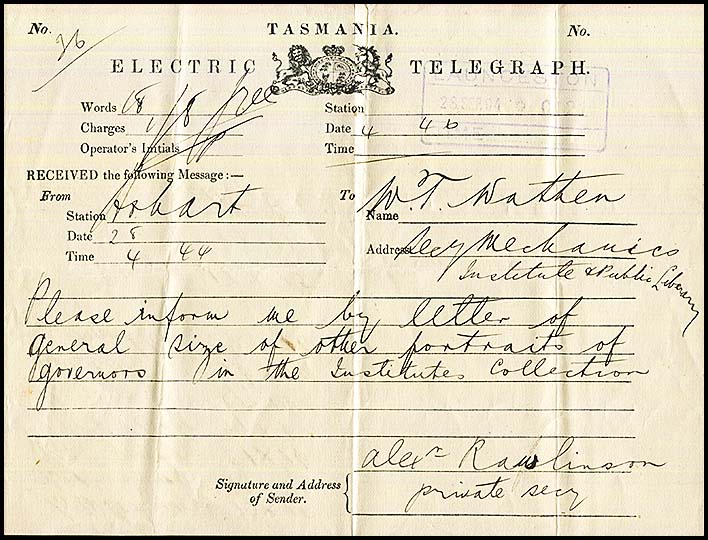 No. 36
TASMANIA.
No.
ELECTRIC TELEGRAPH.
LAUNCESTON
Words 18
Charges 1/8 free
Operator's Initials
Station
Date 4 46
Time
RECEIVED the following Message:—
From
Station Hobart
Date 28
Time 4 44
To W. T. Wathen
Name
Address Secy Mechanics
Institute & Public Library
Please inform me by letter of
general size of other portraits of
governors in the Institutes Collection
Signature and Address
of Sender.
Alexr Rawlinson
private secy